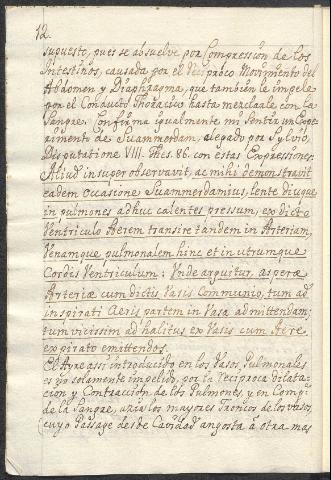 12.
supuesto, pues se absuelve por Compression de los
Intestinos, causada por el Reciproco Movimiento del
Abdomen y Diaphragma, que tambien le impele
por el Conducto Thoracico hasta mezclarle con la
Sangre. Confirma igualmente mi sentir un Expe-
rimento de Suammerdam, alegado por Sylvio,
Disputatione VIII. Thes. 86. con estas Expressiones:
Aliud insuper observavit, ac mihi demonstravit
eadem occasione Suammerdamius, lente diuque
in pulmones adhuc calentes pressum, ex dicto
Ventriculo Aerem transire tandem in Arteriam,
Venamque pulmonalem hinc et in utrumque
Cordis Ventriculum: Unde arguitur, asperæ
Arteriæ cum dictis Vasis Communio, tum ad
inspirati Aeris partem in Vasa admittendam;
tum vicissim ad halitus ex Vasis cum Aere
expirato emittendos.
El Ayre assi introducido en los Vasos Pulmonales
es no solamente impelido, por la reciproca dilata-
cion y Contraccion de los Pulmones, y en Comp.
de la Sangre, azia los mayores Troncos de los vasos,
(cuyo Passage desde Cavidad angosta à otra mas